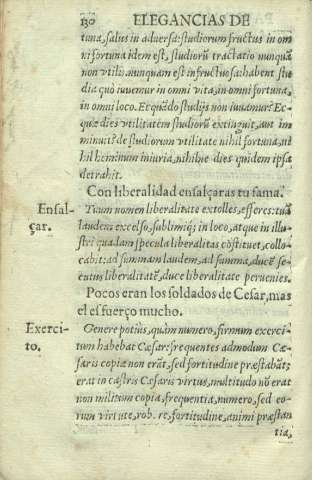 130 ELEGANCIAS DE
tuna, salus in aduersa: studiorum fructus in om
ni fortuna idem est, studiorũ tractatio nunquã
non vtilis, nunquam est infructuosa: habent stu
dia quò iuuemur in omni vita, in omni fortuna,
in omni loco. Et quãdo studijs non iuuamur? Ec-
quæ dies vtilitatem studiorũ extinguit, aut im
minuit? de studiorum vtilitate nihil fortuna, ni
hil hominum iniuria, nihil ne dies quidem ipsa
detrahit.
Con liberalidad ensalçaras tu fama.
Ensal-
çar.
Tuum nomen liberalitate extolles, efferes: tuã
laudem excelso, sublimiq; in loco, atque in illu-
stri quadam specula liberalitas cõstituet, collo-
cabit: ad summam laudem, ad summa, ducẽ se-
cutus liberalitatẽ, duce liberalitate peruenies.
Pocos eran los soldados de Cesar, mas
el esfuerço mucho.
Exerci-
to.
Genere potius, quàm numero, firmum exerci-
tum habebat Cæsar: frequentes admodum Cæ-
saris copiæ non erãt, sed fortitudine præstabãt;
erat in castris Cæsaris virtus, multitudo nõ erat
non militum copia, frequentia, numero, sed eo-
rum virtute, robore, fortitudine, animi præstan
tia,